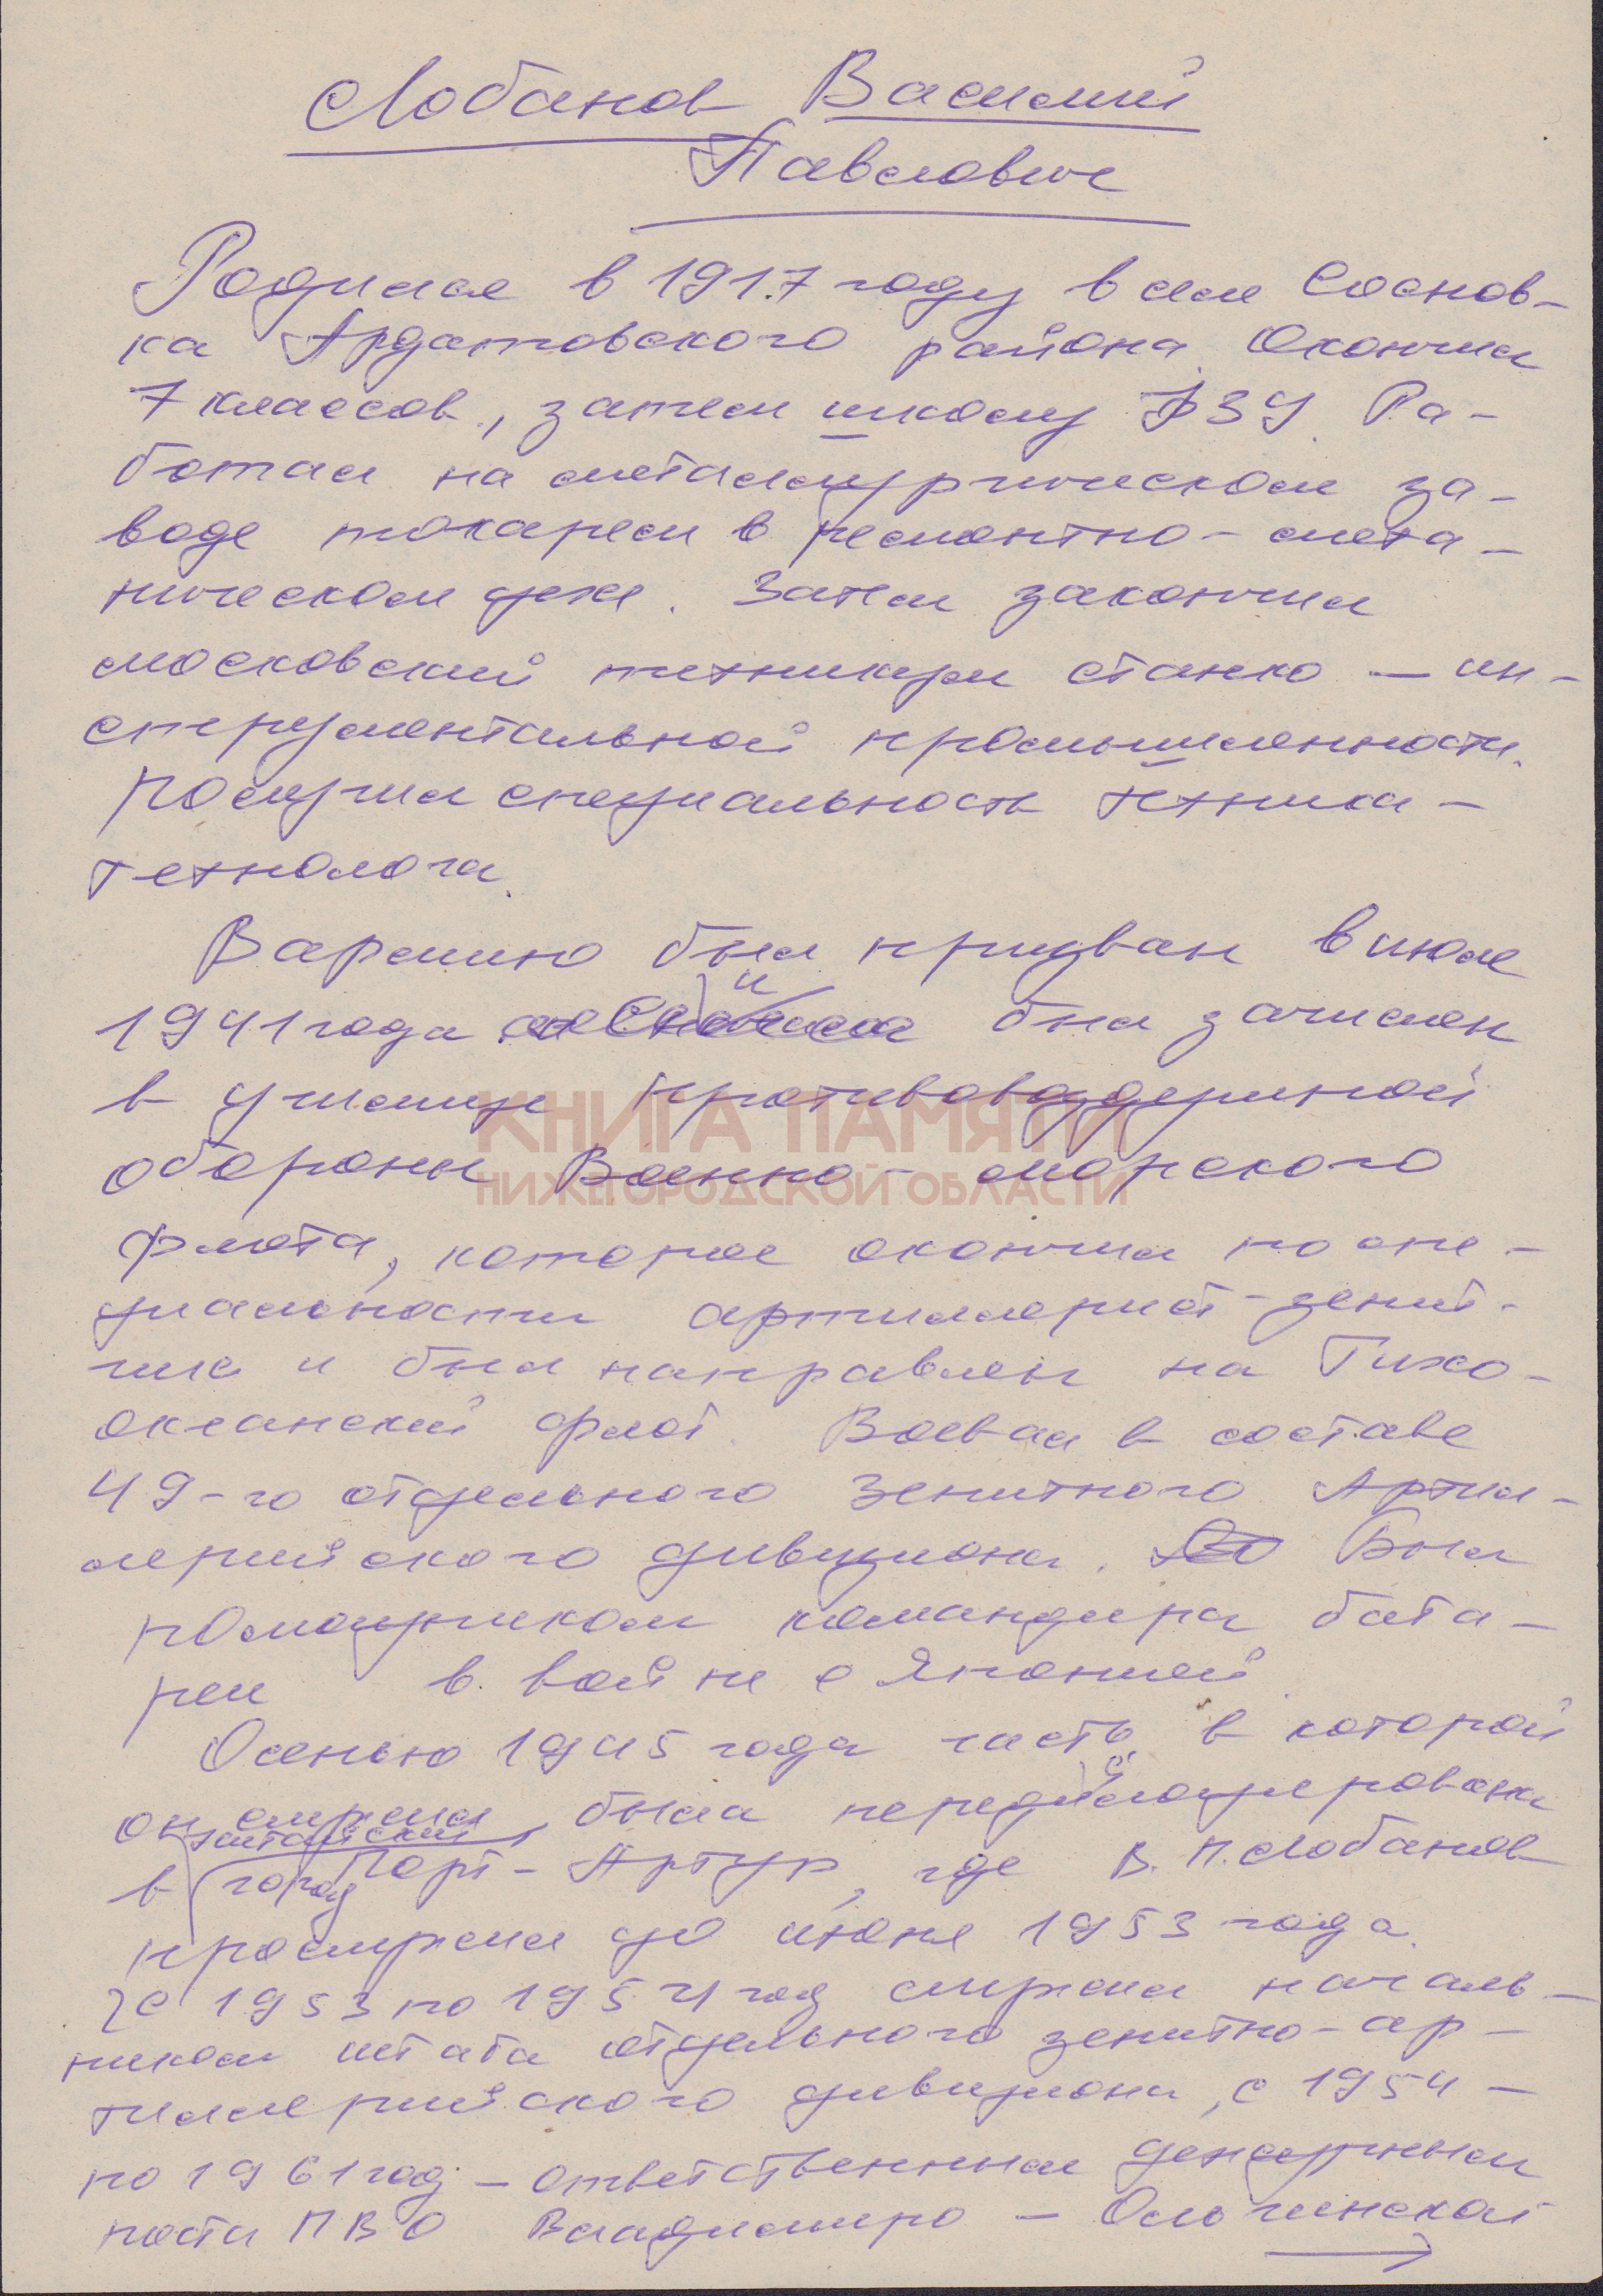 Лобанов Василий
Павлович
Родился в 1917 году в селе Соснов-
ка Ардатовского района. Окончил
7 классов, затем школу ФЗУ. Ра-
ботал на металлургическом за-
воде токарем в ремонтно-меха-
ническом цехе. Затем закончил
московский техникум станко-ин-
струментальной промышленности.
Получил специальность техника-
технолога.
В армию был призван в июле
1941 года и был зачислен
в училище противовоздушной
обороны Военно-морского
флота, которое окончил по спе-
циальности артиллерист-зенит-
чик и был направлен на Тихо-
океанский флот. Воевал в составе
49-го отдельного зенитного Артил-
лерийского дивизиона. Был
помощником командира бата-
реи в войне с Японией.
Осенью 1945 года часть, в которой
он служил, была передислоцирована
в китайский город Порт-Артур, где В.П. Лобанов
прослужил до июня 1953 года.
С 1953 по 1954 год служил началь-
ником штаба отдельного зенитно-ар-
тиллерийского дивизиона, с 1954 -
по 1961 год - ответственным дежурным
поста ПВО Владимиро - Ольгинской
КНИГА ПАМЯТИ
НИЖЕГОРОДСКОЙ ОБЛАСТИ